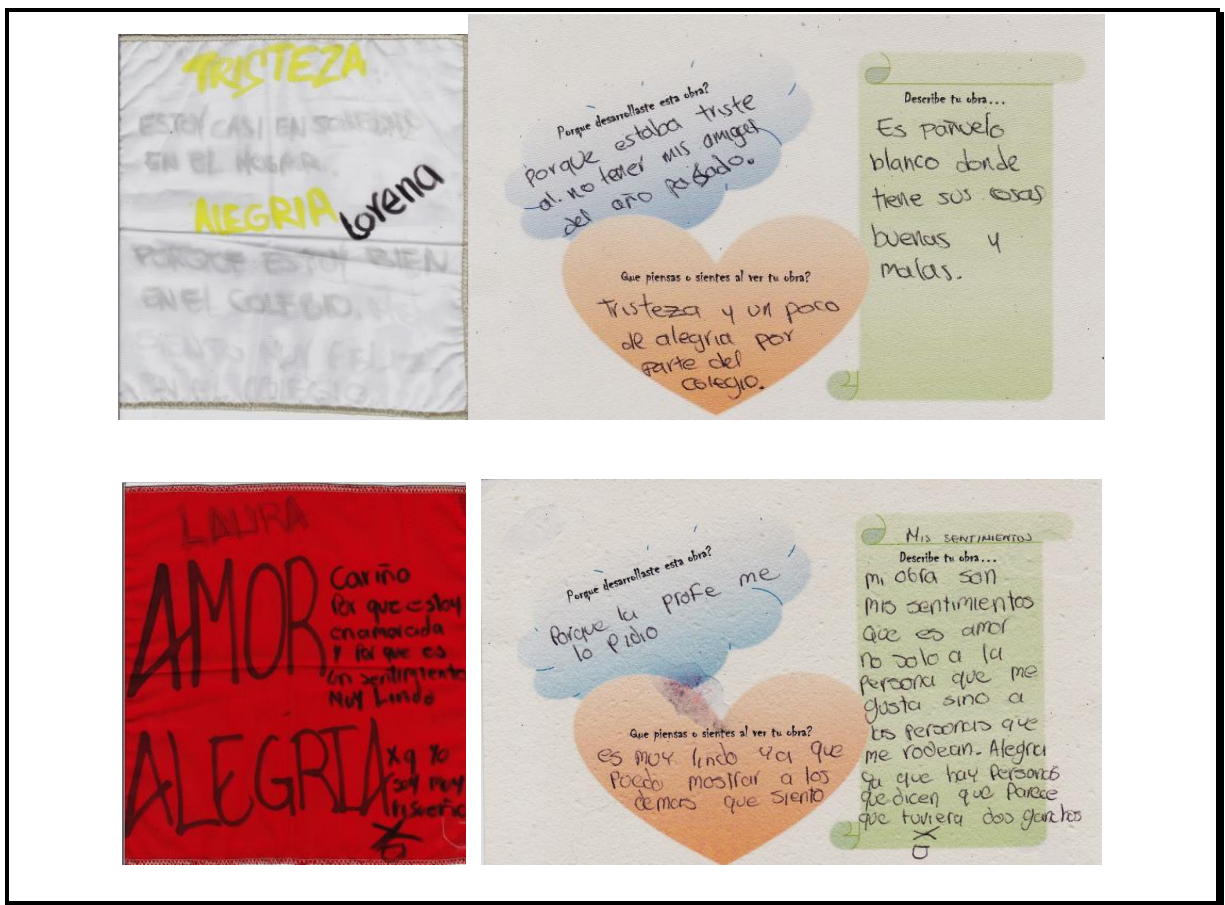 TRISTEZA
ESTOY CASI EN SOLEDAD
EN EL HOGAR.
ALEGRIA
Lorena
PORQUE ESTOY BIEN
EN EL COLEGIO. ME
SIENTO MUY FELIZ
EN EL COLEGIO
Porque desarrollaste esta obra?
porque estaba triste
al no tener mis amigas
del año pasado.
Que piensas o sientes al ver tu obra?
Tristeza y un poco
de alegria por
parte del
colegio.
Describe tu obra...
Es pañuelo
blanco donde
tiene sus cosas
buenas y
malas.
LAURA
AMOR
Cariño
Por que estoy
enamorada
Y Por que es
Un sentimiento
Muy Lindo
ALEGRIA
xq Yo
soy muy
risueña
Porque desarrollaste esta obra?
Porque la profe me
lo pidio
Que piensas o sientes al ver tu obra?
es muy lindo ya que
puedo mostrar a los
demas que siento
MIS SENTIMIENTOS
Describe tu obra...
mi obra son
mis sentimientos
que es amor
no solo a la
persona que me
gusta sino a
las personas que
me rodean. Alegria
ya que hay Personas
que dicen que Parece
que tuviera dos ganchos